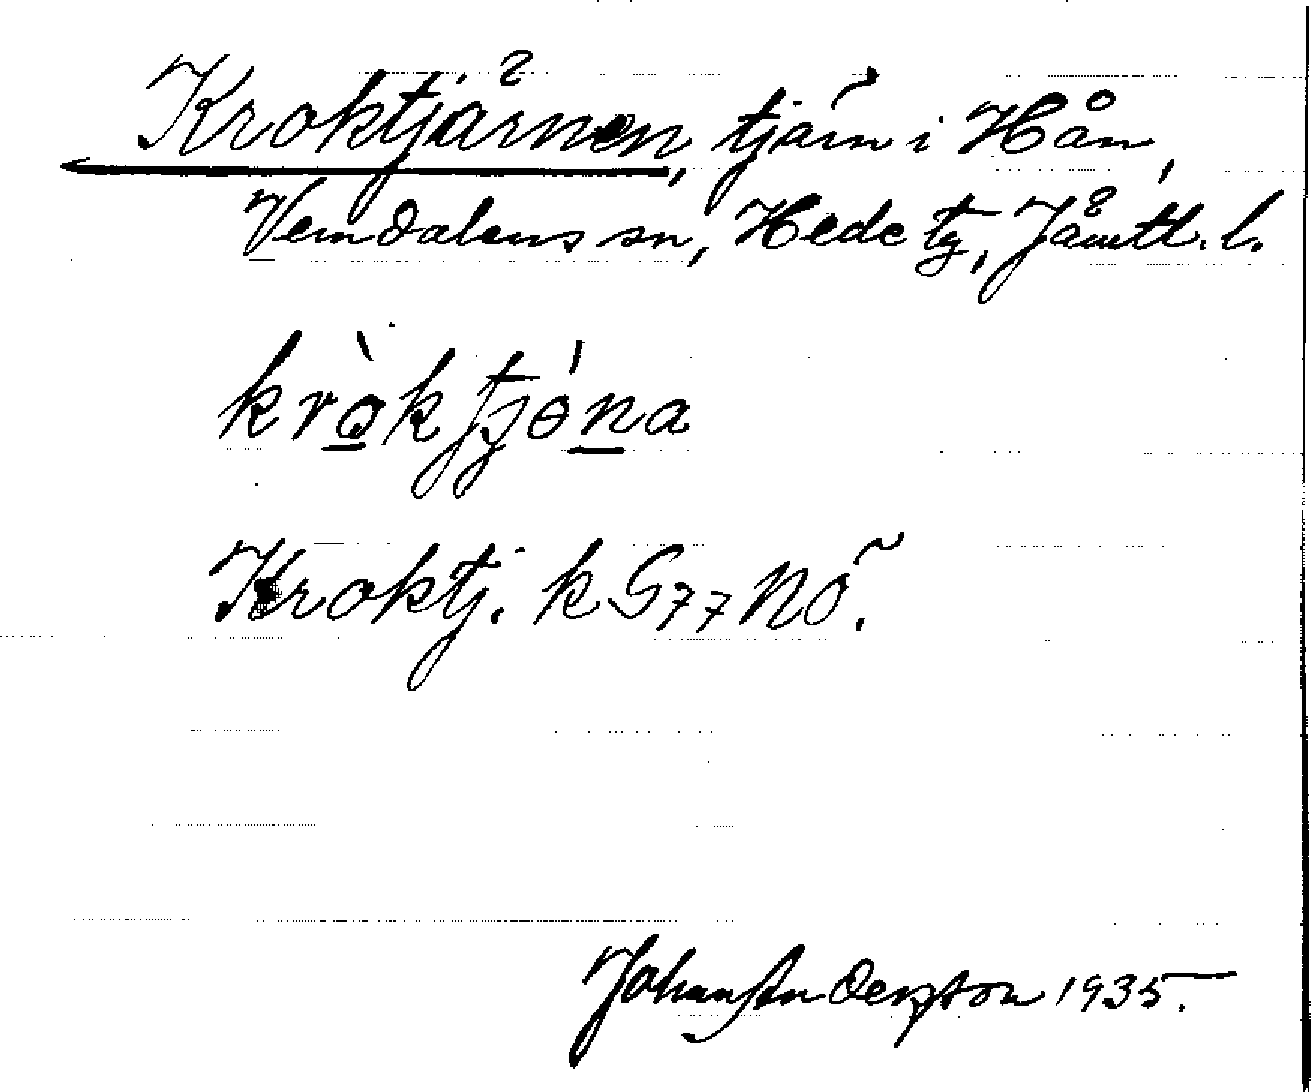 Kroktjärnen, tjärn i Hån,
Vemdalens sn, Hede tg, Jämtl. l.
kròktjǿna
Kroktj. k G77 NÖ.
Johan Anderzson 1935.